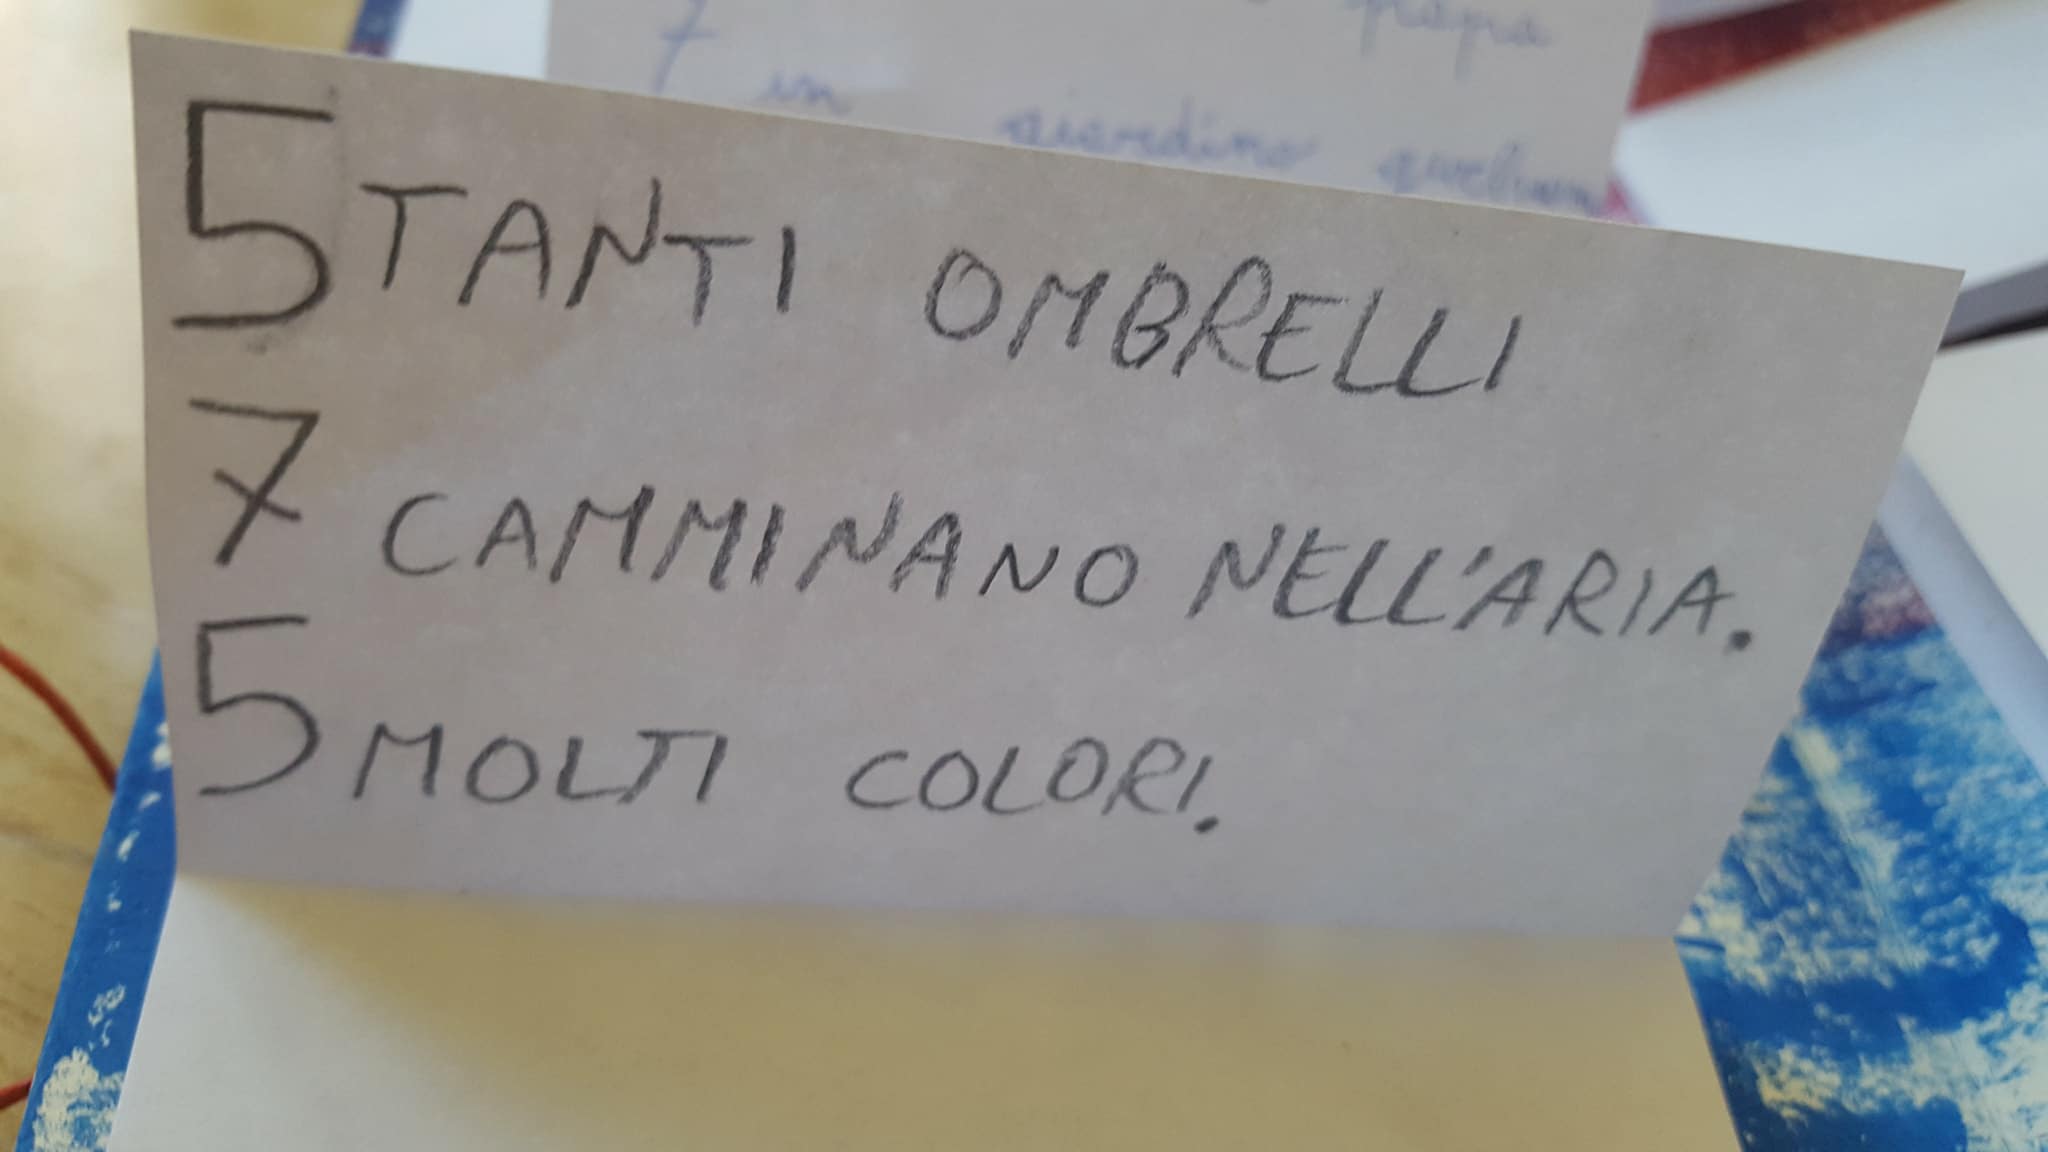 7
un giardino
5 TANTI OMBRELLI
7 CAMMINANO NELL'ARIA.
5 MOLTI COLORI.